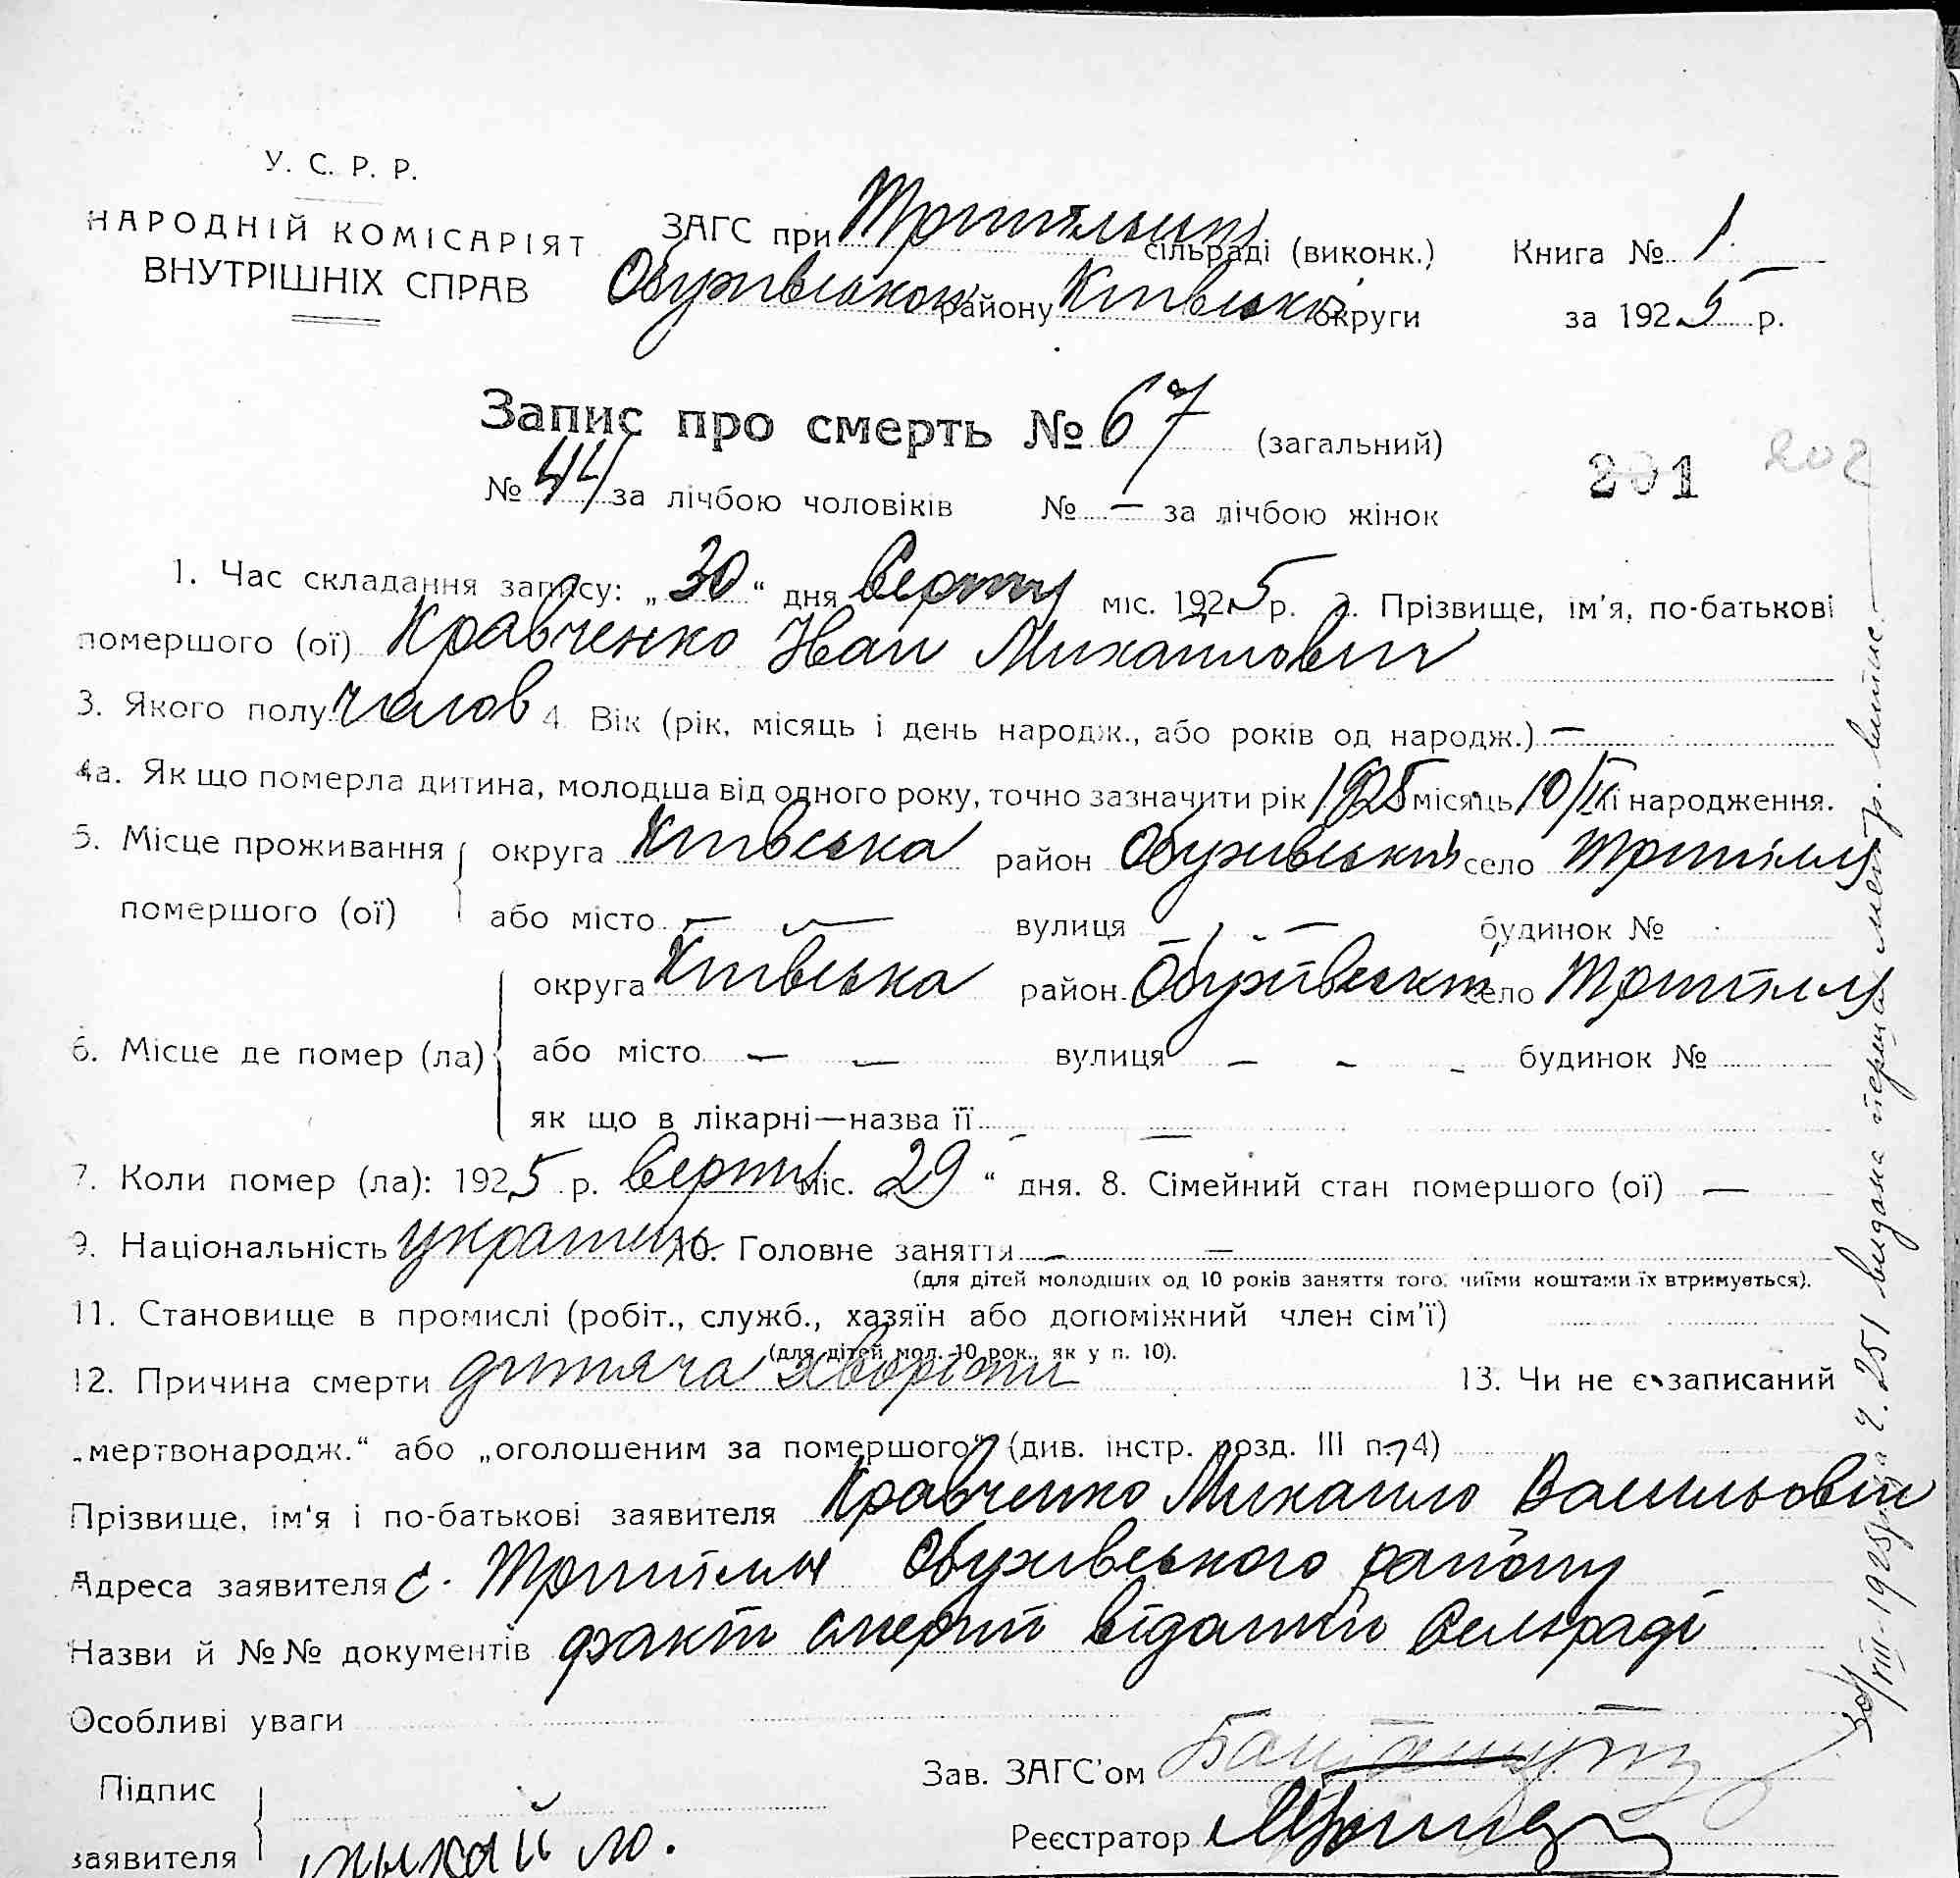 У. С. Р. Р.
НАРОДНІЙ КОМІСАРІЯТ
ВНУТРІШНІХ СПРАВ
ЗАГС при сільраді (виконк.)
Обухівському району Київської округи
Книга № 1
за 1925 р.
Запис про смерть № 67 (загальний)
№ 44 за лічбою чоловіків № — за лічбою жінок
201
202
1. Час складання запису: „30“ дня серпня міс. 1925 р. 2. Прізвище, ім'я, по-батькові
помершого (ої) Кравченко Иван Михайлович
3. Якого полу чолов 4. Вік (рік, місяць і день народж., або років од народж.) —
4а. Як що померла дитина, молодша від одного року, точно зазначити рік 1925 місяць 10/ народження.
5. Місце проживання помершого (ої)
округа Київська район Обухівський село Трипілля
або місто — вулиця — будинок №
6. Місце де помер (ла)
округа Київська район Обухівський село Трипілля
або місто — — вулиця — - - будинок №
як що в лікарні—назва її - —
7. Коли помер (ла): 1925 р. серпня міс. „29“ дня. 8. Сімейний стан помершого (ої) —
9. Національність українець 10. Головне заняття — —
(для дітей молодших од 10 років заняття того, чиїми коштами їх втримується).
11. Становище в промислі (робіт., служб., хазяїн або допоміжний член сім'ї)
(для дітей мол. 10 рок., як у п. 10).
12. Причина смерти дитяча хворість 13. Чи не є записаний
„мертвонародж.“ або „оголошеним за помершого“ (див. інстр. розд. III п. 4)
Прізвище, ім'я і по-батькові заявителя Кравченко Михайло Васильович
Адреса заявителя с. Трипілля Обухівського району
Назви й №№ документів факт смерти відомий сельраді
Особливі уваги
Підпис заявителя михайло.
Зав. ЗАГС'ом
Реєстратор
30/VIII-1925р. за Ч. 251 видана перша метр. випис.